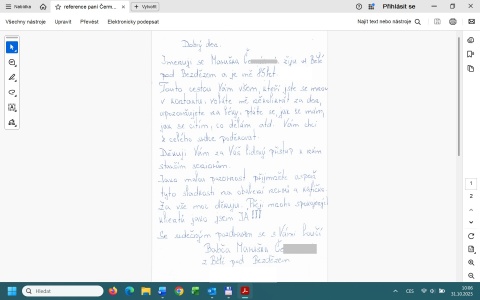 Nabídka
reference paní Čerm...
Vytvořit
Přihlásit se
Všechny nástroje Upravit Převést Elektronicky podepsat
Najít text nebo nástroje
Dobrý den.
Jmenuji se Maruška Če žiju v Bělé
pod Bezdězem a je mi 85 let
Touto cestou Vám všem, kteří jste se mnou
v kontaktu, voláte mi několikrát za den,
upozorňujete na léky, ptáte se, jak se mám,
jak se cítím, co dělám atd. Vám chci
z celého srdce poděkovat.
Děkuji Vám za Váš lidský přístup k nám
starším seniorům.
Jako malou pozornost přijměte aspoň
tyto sladkosti na
Za vše moc děkuji. Přeji mnoho spokojených
klientů jako jsem JÁ!!!
Se srdečným pozdravem se s Vámi loučí
Babča Maruška Če
z Bělé pod Bezdězem
1
2
Hledat
CES
10:06
31.10.2025